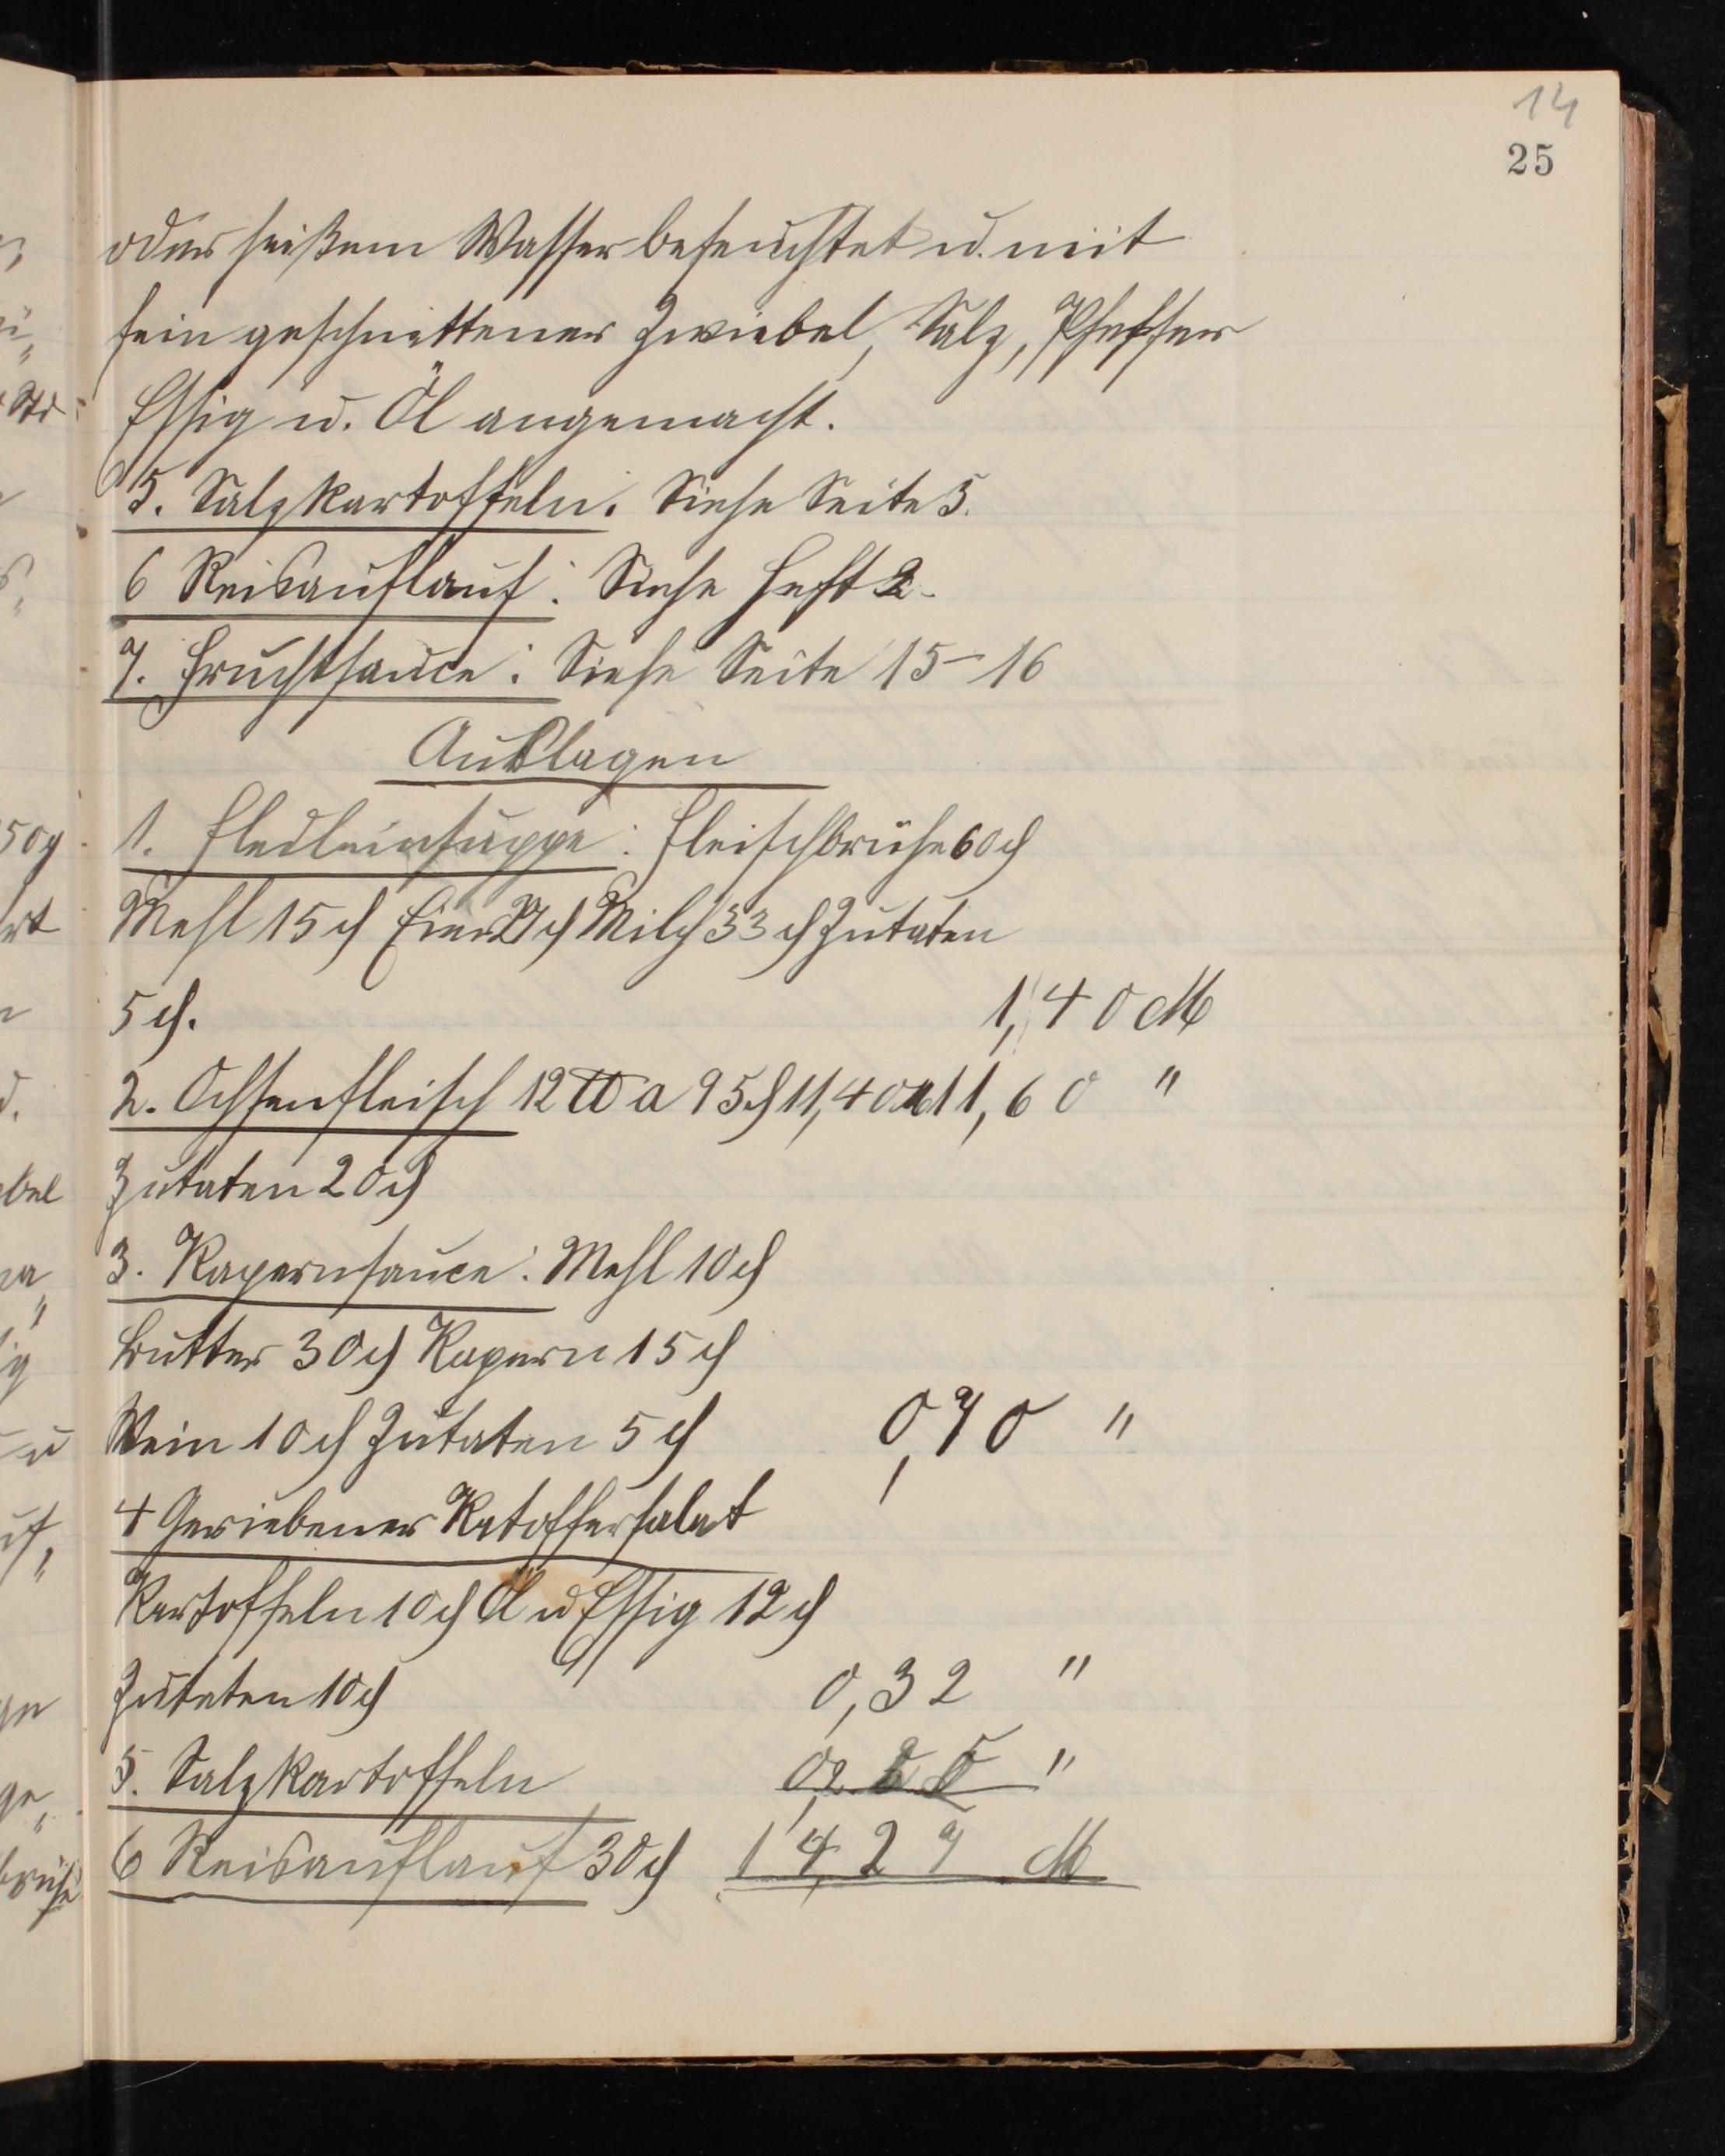 14
25
oder heißem Wasser befeuchtet u. mit
fein geschnittener Zwiebel, Salz, Pfeffer
Essig u. Öl angemacht.
5. Salzkartoffeln. Siehe Seite 5.
6 Reisauflauf: Siehe Heft 2.
7. Fruchtsauce: Siehe Seite 15-16
Auslagen
1. Flädleinsuppe: Fleischbrühe 60 ₰
Mehl 15 ₰ Eier 27 ₰ Milch 33 ₰ Zutaten
5 ₰. 1,40 M
2. Ochsenfleisch 12 ℔ a 95 ₰ 11,40 M 11,60 "
Zutaten 20 ₰
3. Kapernsauce: Mehl 10 ₰
Butter 30 ₰ Kapern 15 ₰
Wein 10 ₰ Zutaten 5 ₰ 0,70 "
4 Geriebener Katoffersalat
Kartoffeln 10 ₰ Öl u Essig 12 ₰
Zutaten 10 ₰ 0,32 "
5. Salzkartoffeln 0,25 "
6 Reisauflauf 30 ₰ 14,27 M